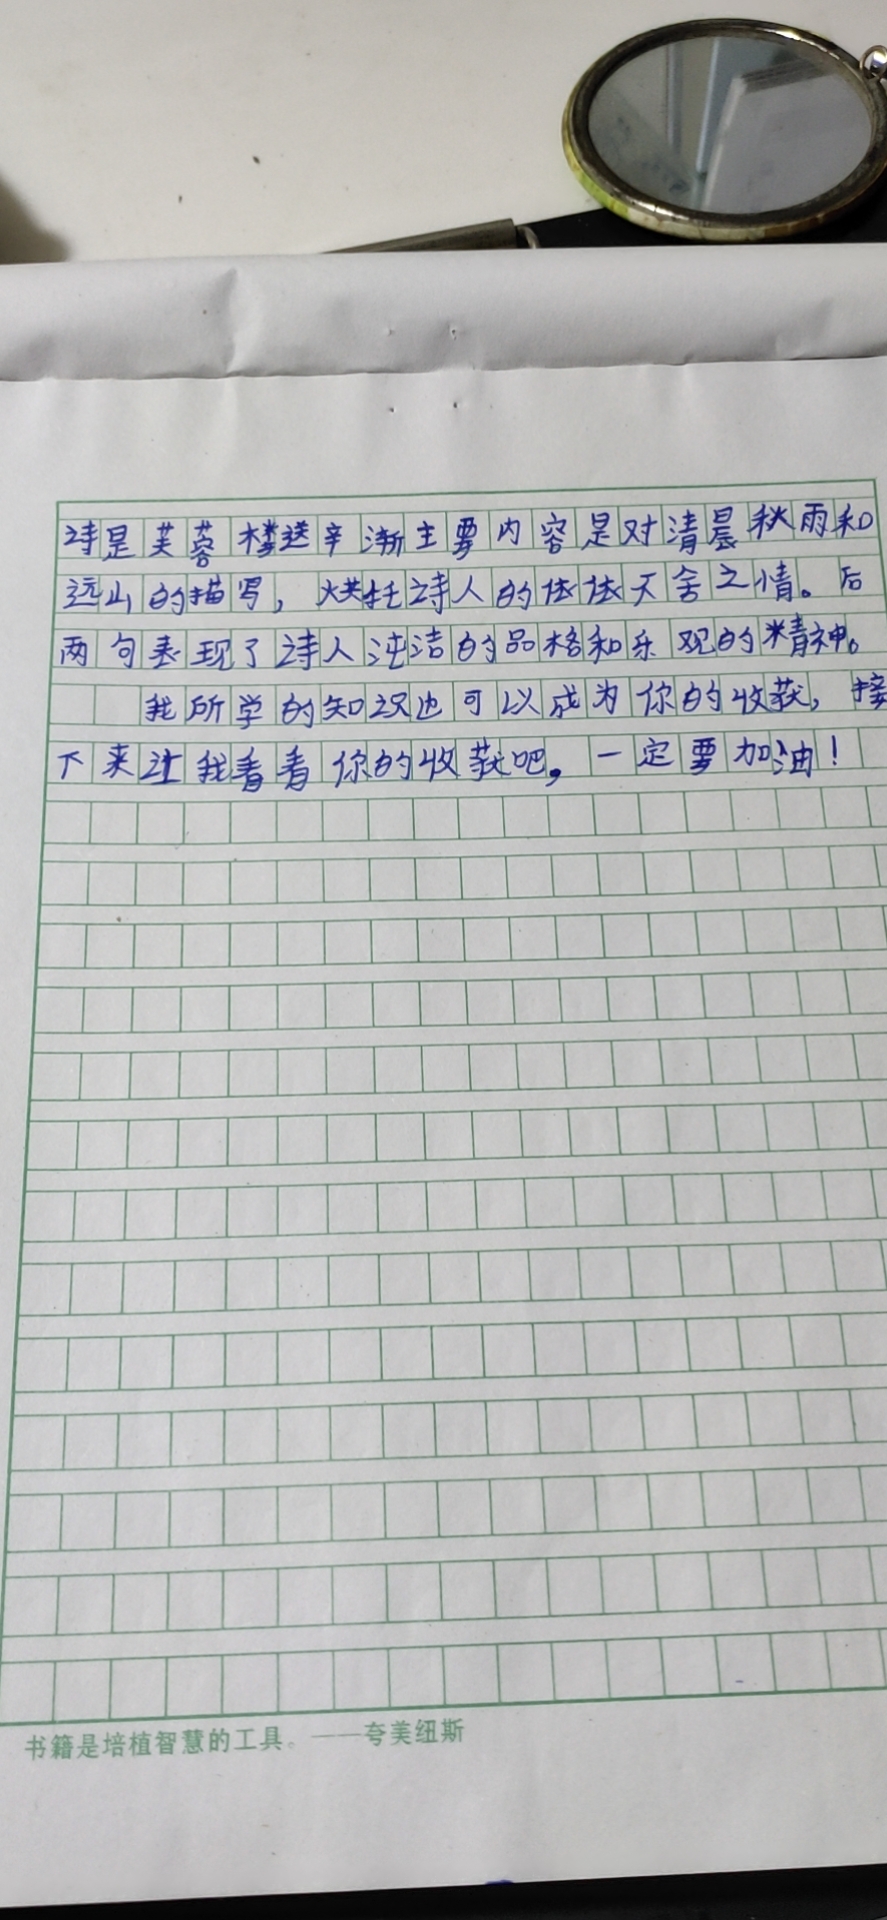 诗是芙蓉楼送辛渐主要内容是对清晨秋雨和
远山的描写，烘托诗人的依依不舍之情。后
两句表现了诗人纯洁的品格和乐观的精神。
我所学的知识也可以成为你的收获，接
下来让我看看你的收获吧，一定要加油！
书籍是培植智慧的工具。——夸美纽斯